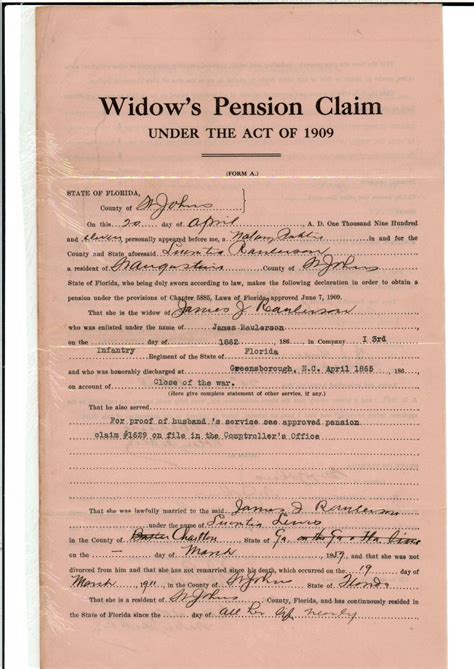 Widow's Pension Claim
UNDER THE ACT OF 1909
(FORM A.)
STATE OF FLORIDA,
County of St Johns
On this 20 day of April A. D. One Thousand Nine Hundred
and eleven personally appeared before me, a Notary Public in and for the
County and State aforesaid Raulerson
a resident of County of St Johns
State of Florida, who being duly sworn according to law, makes the following declaration in order to obtain a
pension under the provisions of Chapter 5885, Laws of Florida, approved June 7, 1909.
That she is the widow of James J Raulerson
who was enlisted under the name of James Raulerson
on the day of 1862 186 in Company I 3rd
Infantry Regiment of the State of Florida
and who was honorably discharged at Greensborough, N.C. April 1865 186
on account of Close of the war.
(Here give complete statement of other service, if any.)
That he also served
For proof of husband's service see approved pension
claim #1629 on file in the Comptroller's Office
That she was lawfully married to the said James J Raulerson
under the name of Lewis
in the County of Charlton State of Ga. on the Ga & Fla line
on the — day of March 18 9, and that she was not
divorced from him and that she has not remarried since his death, which occurred on the 19 day of
March 1911 in the County of St Johns State of Florida
That she is a resident of St Johns County, Florida, and has continuously resided in
the State of Florida since the day of All her life nearly